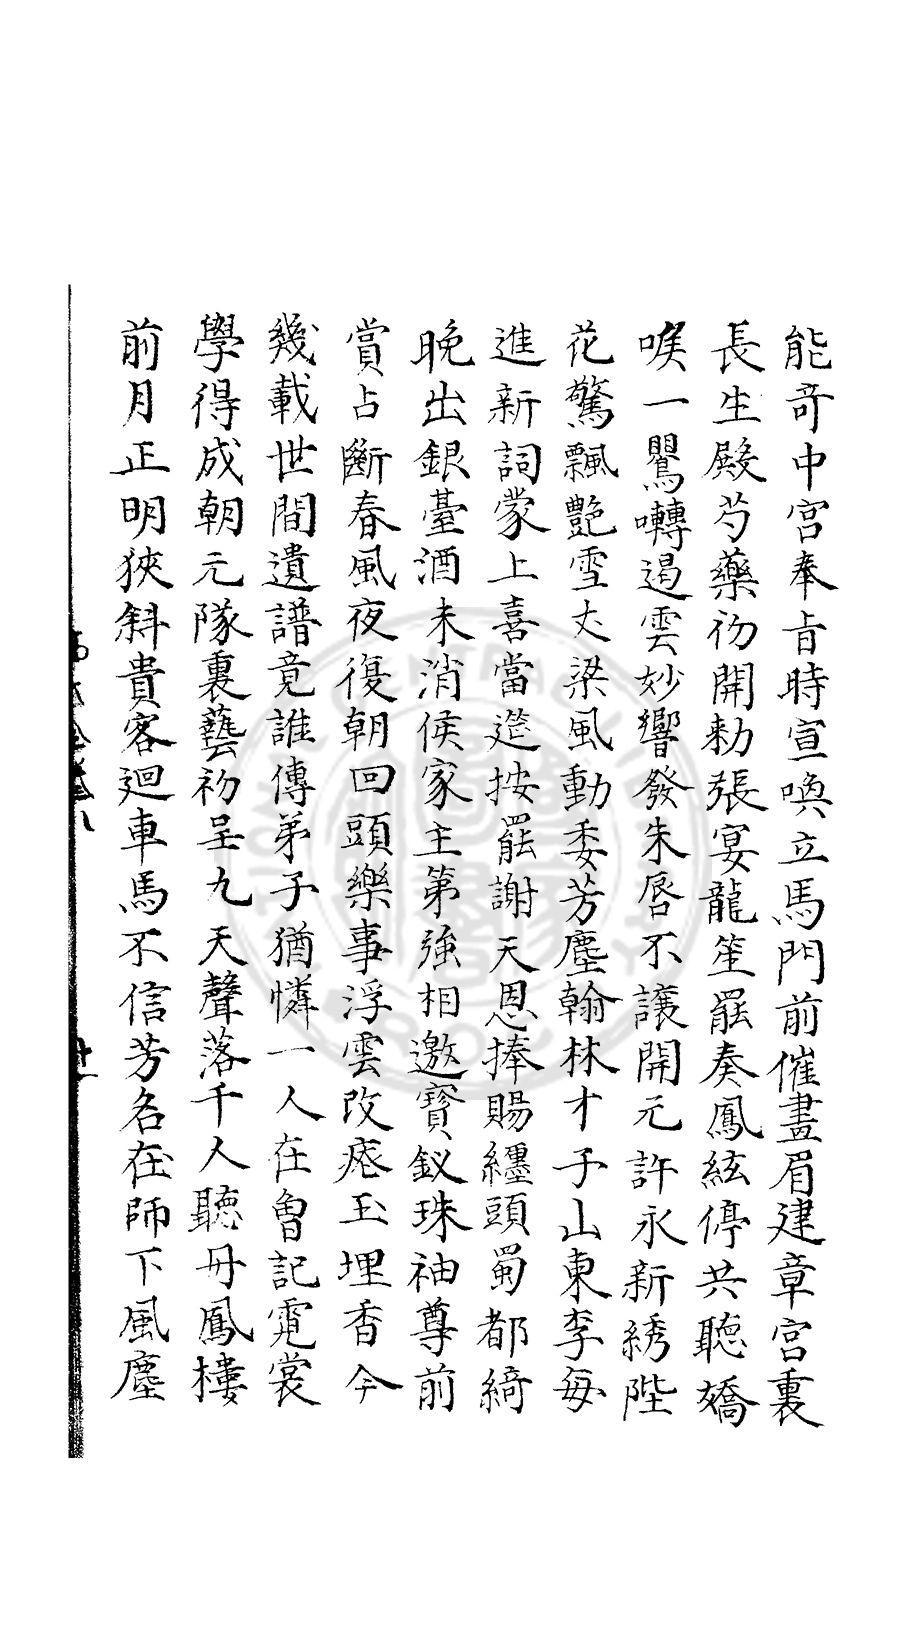 能奇中宮奉旨時宣喚立馬門前催畫眉建章宮裏
長生殿芍藥初開勅張宴龍笙罷奏鳳絃停共聽嬌
喉一鸎囀遏雲妙響發朱唇不讓開元許永新綉陛
花驚飄艷雪文梁風動委芳塵翰林才子山東李每
進新詞蒙上喜當筵按罷謝天恩捧賜纏頭蜀都綺
晚出銀臺酒未消侯家主第強相邀寳釵珠袖尊前
賞占斷春風夜復朝回頭樂事浮雲改瘞玉埋香今
幾載世間遺譜竟誰傳弟子猶憐一人在曾記霓裳
學得成朝元隊裏藝初呈九天聲落千人聽丹鳳樓
前月正明狹斜貴客迴車馬不信芳名在師下風塵